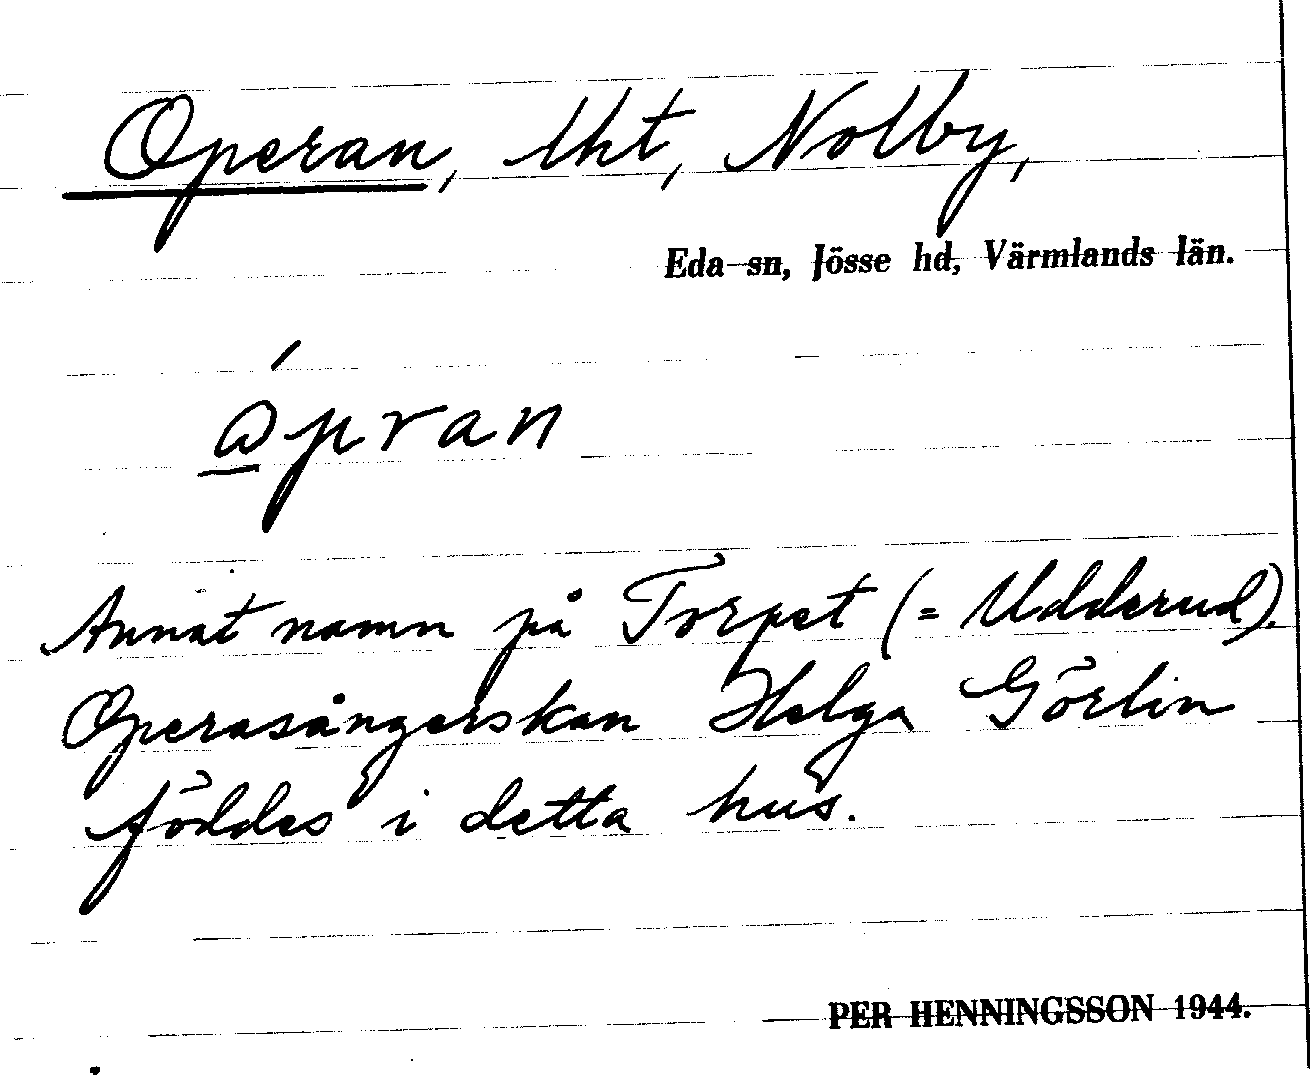 Operan, lht, Nolby,
Eda sn, Jösse hd, Värmlands län.
Annat namn på Torpet (= Udderud).
Operasångerskan Helga Görlin
föddes i detta hus.
PER HENNINGSSON 1944.